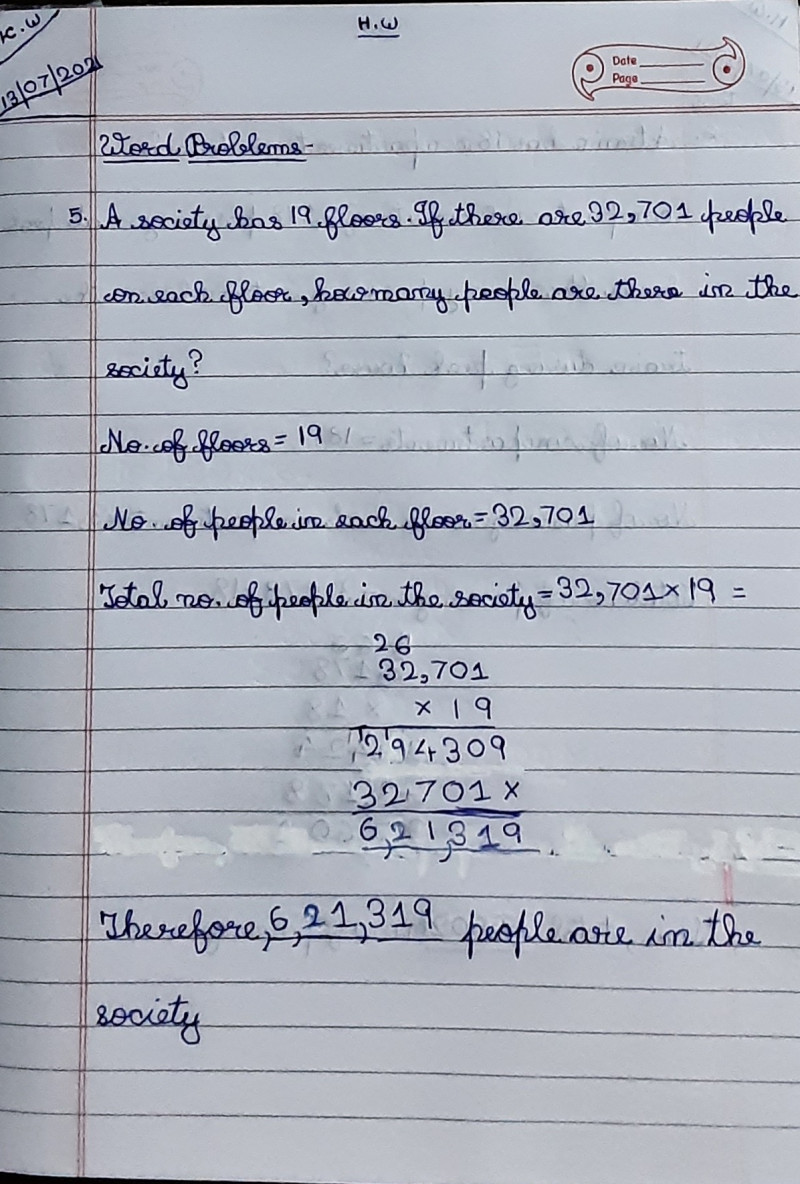 H.W
K.W
13/07/2021
Date
Page
Word Problems-
5. A society has 19 floors. If there are 32,701 people
on each floor, how many people are there in the
society?
No. of floors = 19
No. of people in each floor = 32,701
Total no. of people in the society = 32,701 × 19 =
26
32,701
× 19
294309
32701×
6,21,319
Therefore, 6,21,319 people are in the
society